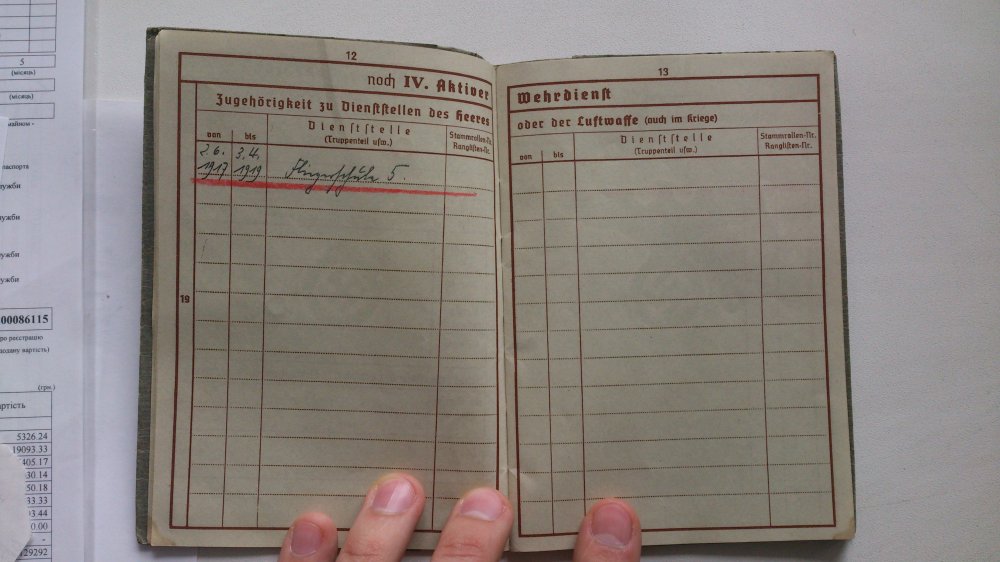 5
(місяць)
(місяць)
майном -
паспорта
служби
служби
служби
служби
00086115
про реєстрацію
додану вартість)
(грн.)
артість
5326.24
19093.33
405.17
30.14
50.18
33.33
03.44
0.00
-
29292
12
noch IV. Aktiver
Zugehörigkeit zu Dienststellen des Heeres
von
bis
Dienststelle
(Truppenteil usw.)
Stammrollen-Nr.
Ranglisten-Nr.
2.6. 3.4.
1917 1919 Fliegerschule 5.
19
13
Wehrdienst
oder der Luftwaffe (auch im Kriege)
von
bis
Dienststelle
(Truppenteil usw.)
Stammrollen-Nr.
Ranglisten-Nr.